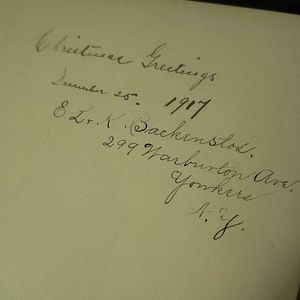 Christmas Greetings
December 25. 1917
E. L. & K. Backenstos.
299 Warburton Ave.
Yonkers
N. Y.